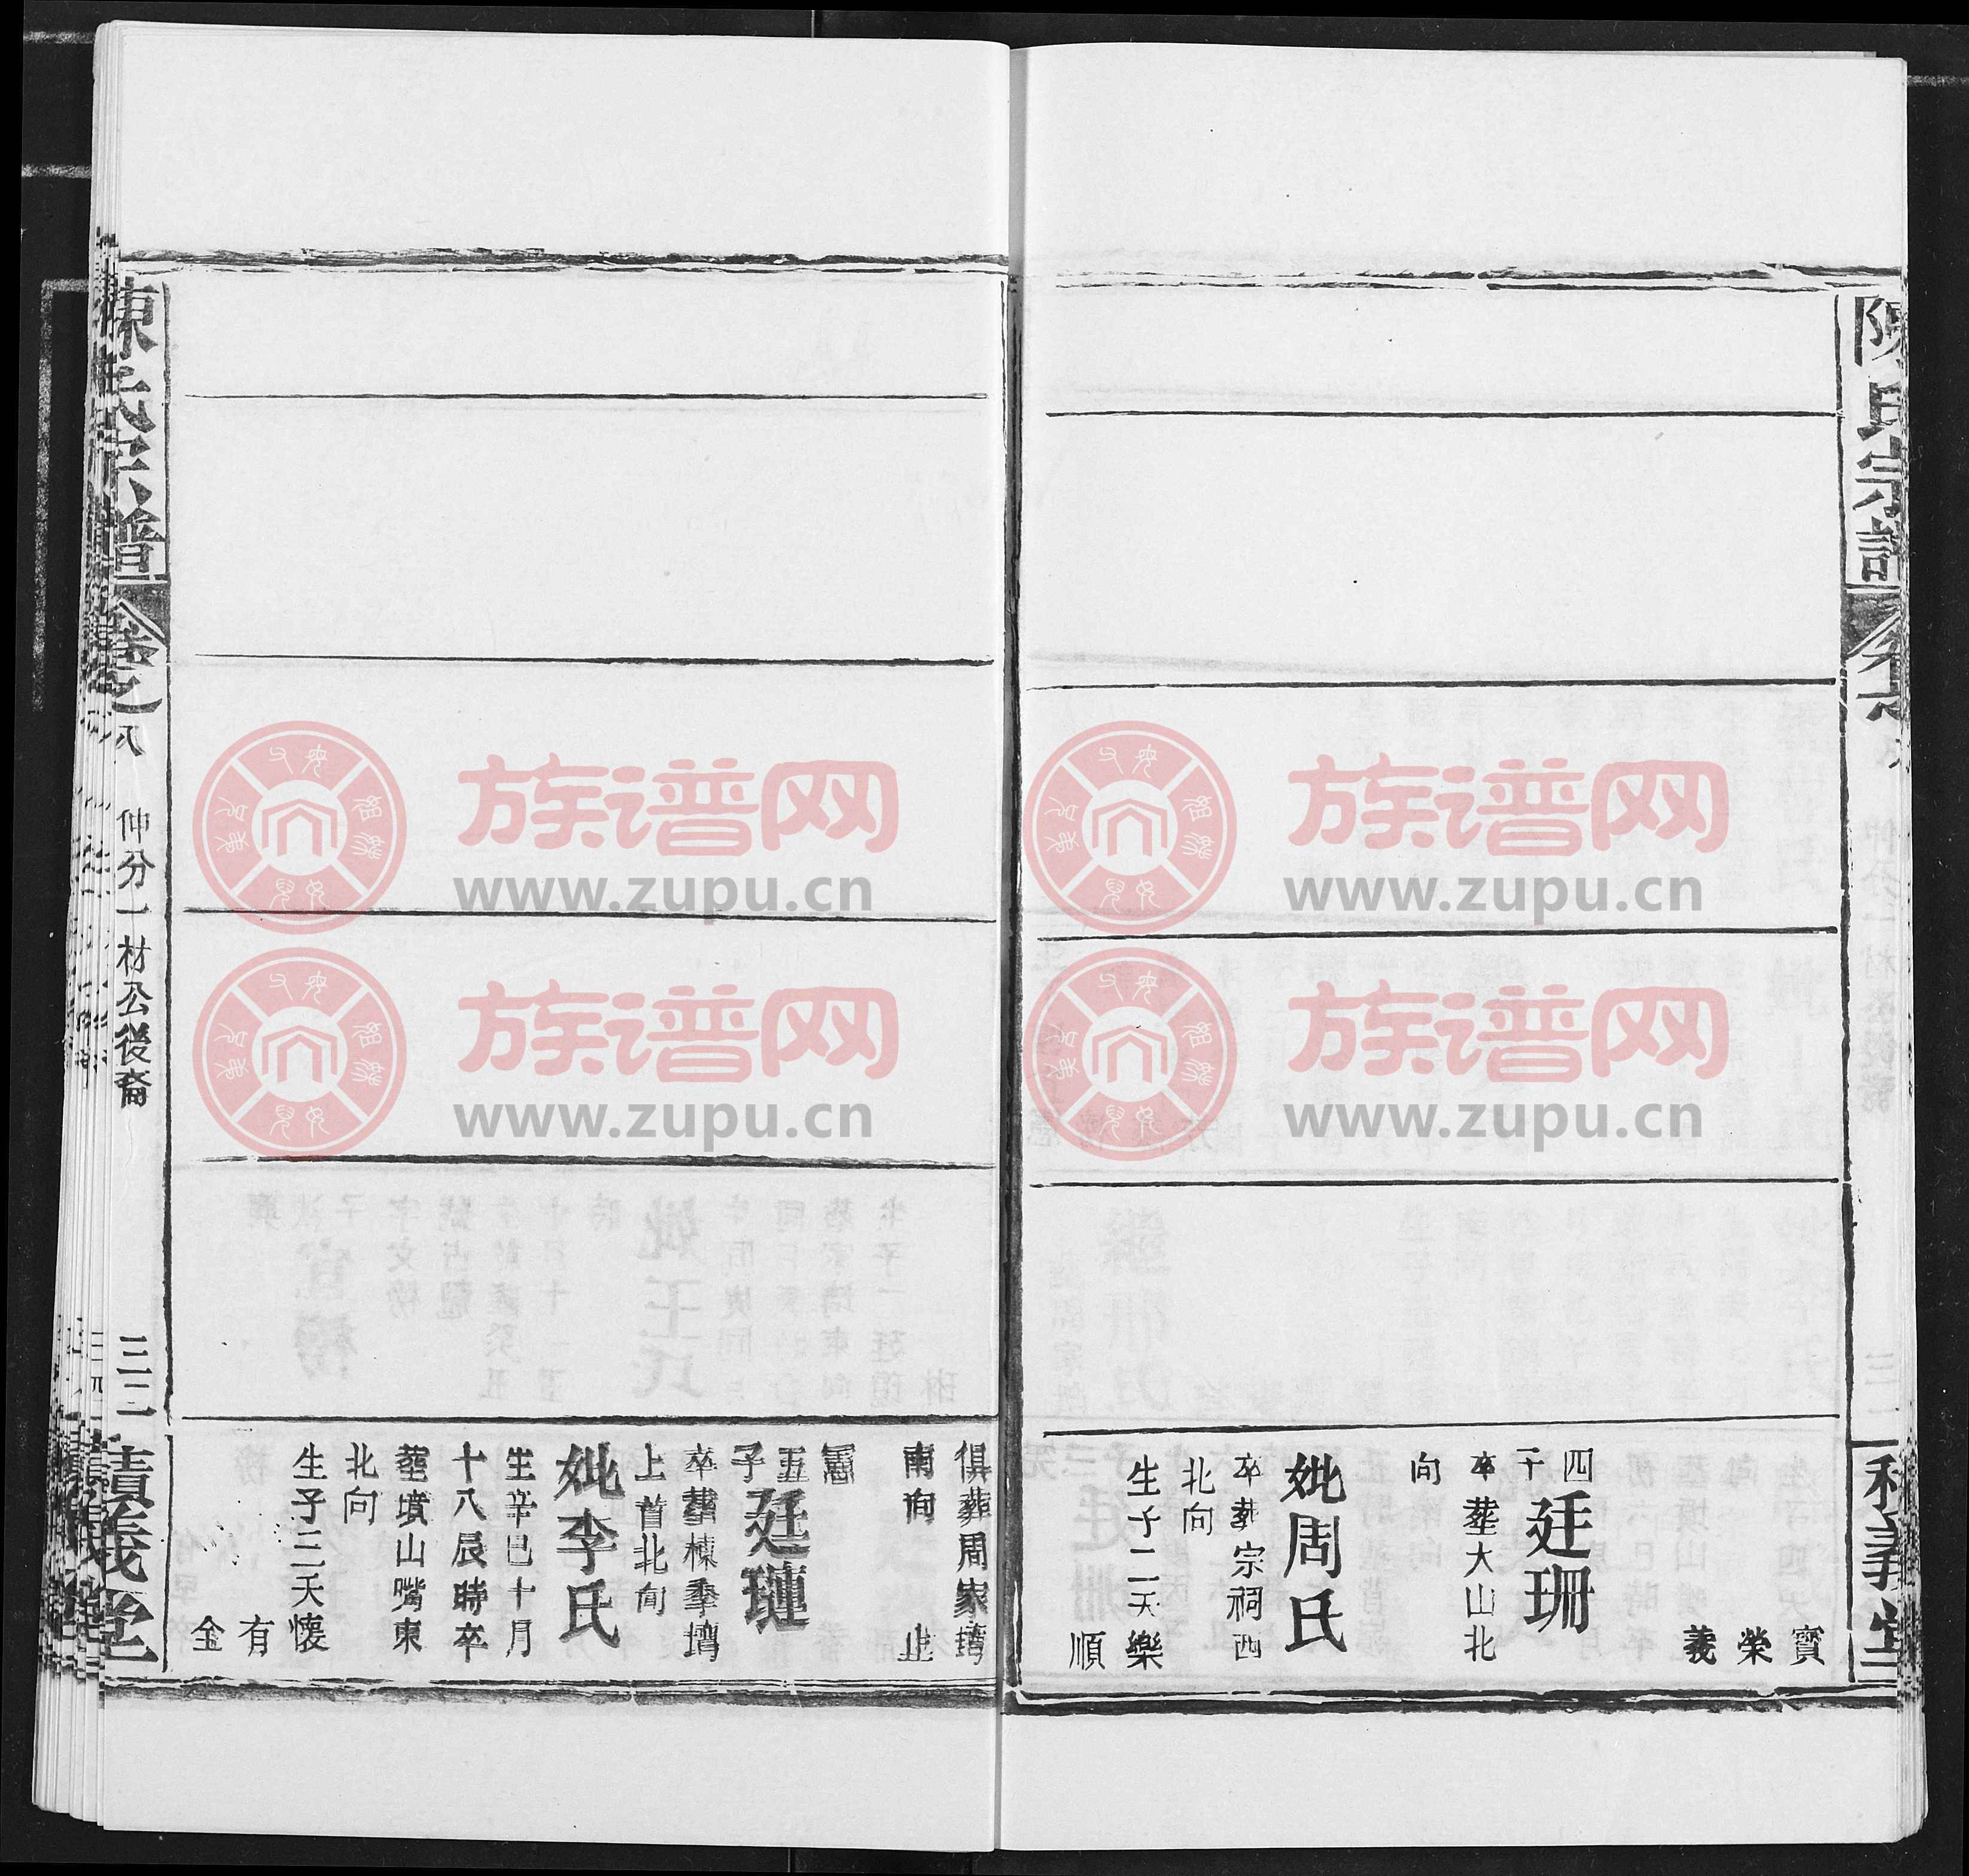 陳氏宗譜
卷之八
寶
榮
義
四
子
廷珊
卒葬大山北
向
妣周氏
卒葬宗祠西
北向
生子二天樂
順
積義堂
俱葬周家塆
南向
止
憲
五
子
廷璉
卒葬棟羣塆
上首北向
妣李氏
生辛巳十月
十八辰時卒
葬墳山嘴東
北向
生子三天懷
有
金
陳氏宗譜
卷之八
仲分一材公後裔
三二
積義堂
族谱网
www.zupu.cn
族谱网
www.zupu.cn
族谱网
www.zupu.cn
族谱网
www.zupu.cn